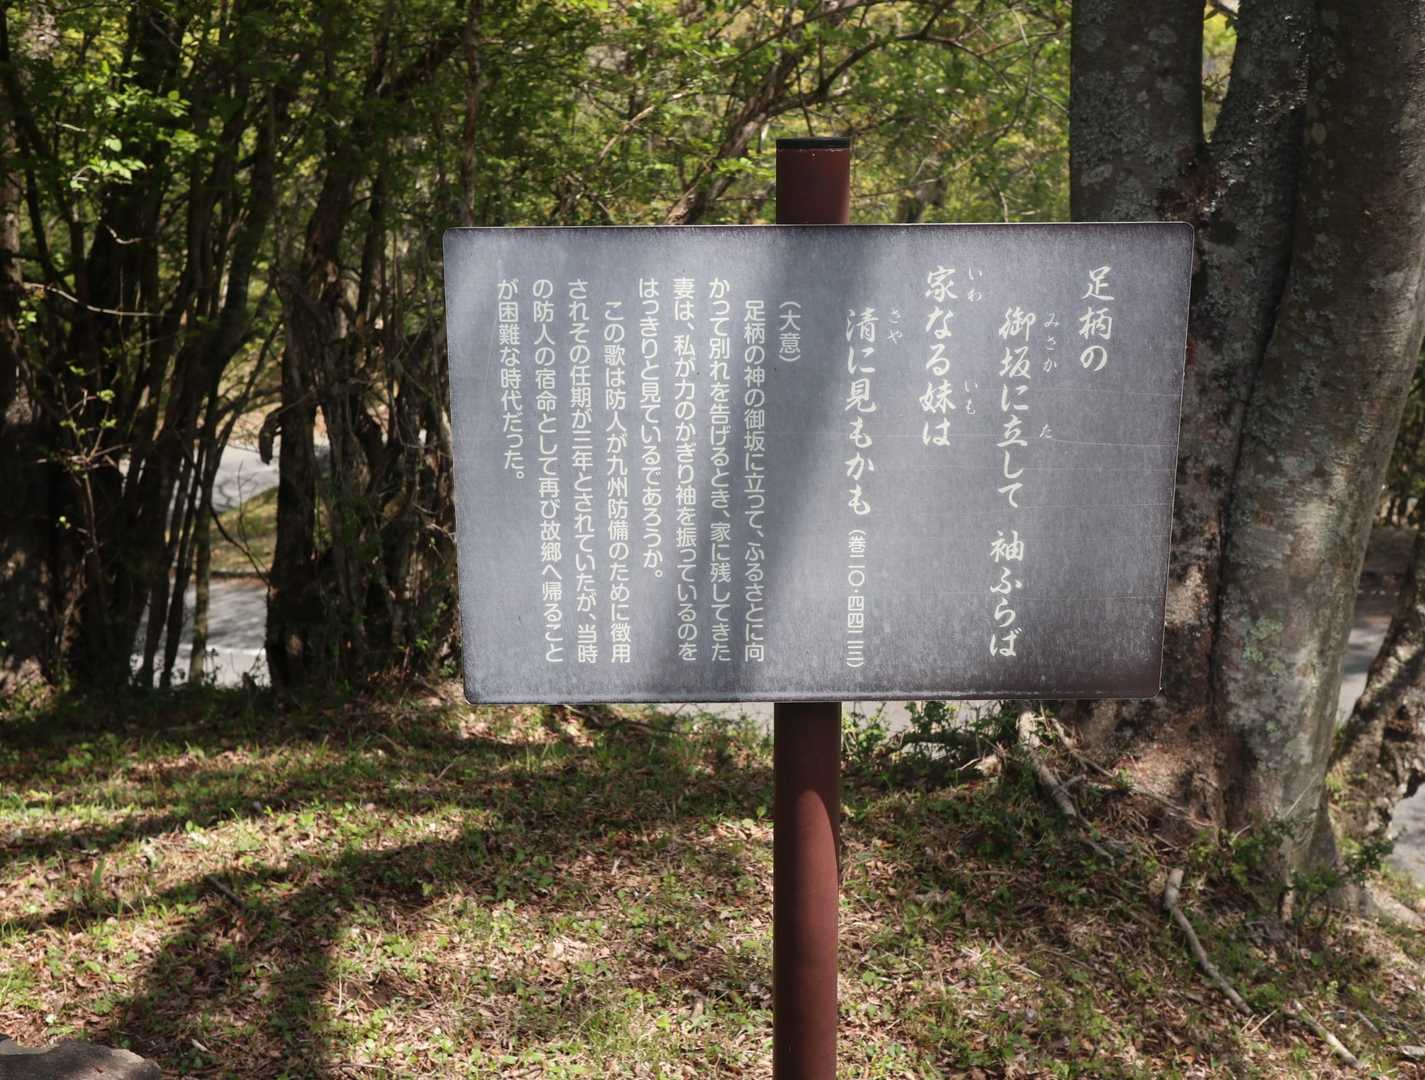 足柄の
御坂に立して 袖ふらば
みさか た
家なる妹は
いわ いも
清に見もかも（巻二〇・四四二三）
さや
（大意）
足柄の神の御坂に立って、ふるさとに向
かって別れを告げるとき、家に残してきた
妻は、私が力のかぎり袖を振っているのを
はっきりと見ているであろうか。
この歌は防人が九州防備のために徴用
されその任期が三年とされていたが、当時
の防人の宿命として再び故郷へ帰ること
が困難な時代だった。